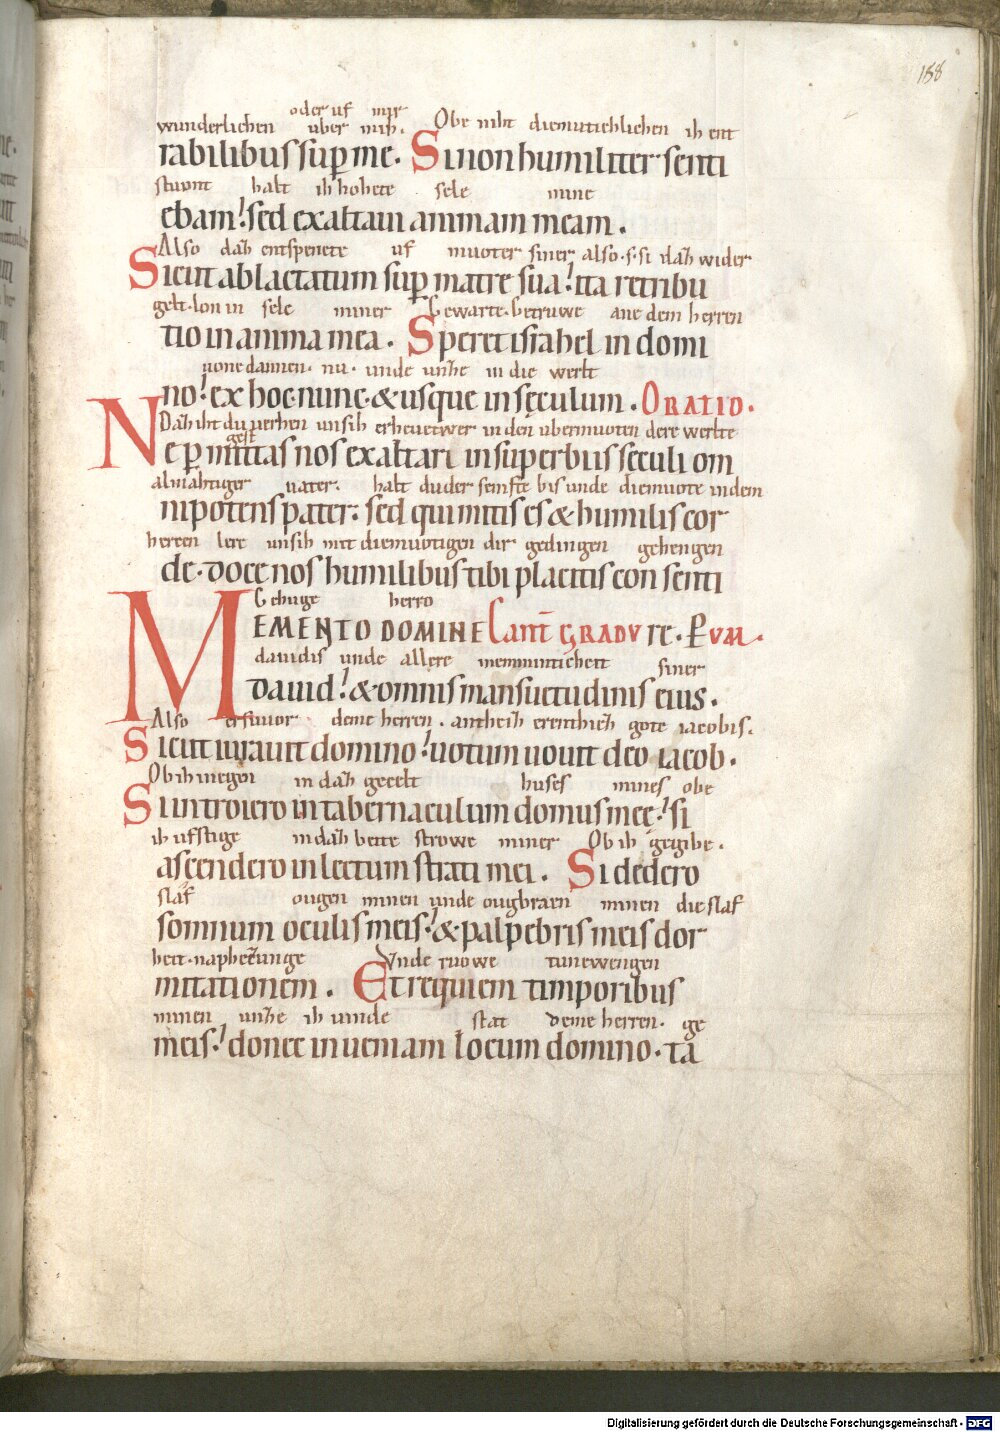 188
oder uf mir
wunderlichen uber mih. Obe niht diemutichlichen ih ent
rabilibus sup me. Si non humiliter senti
stuont halt ih hohete sele mine
ebam: sed exaltaui animam meam.
Also daz entspenete uf muoter siner also.s.si daz wider
Sicut ablactatum sup matre sua: ita retribu
gelt.lon in sele miner Gewarte.betruwe ane dem herren
tio in anima mea. Speret israhel in domi
uone dannen. nu. unde unze in die werlt
no: ex hoc nunc.& usque in sęculum. ORATIO.
Daz iht du uerhen unsih erheuet wer in den ubermuoten dere werlte
gest
Ne pmittas nos exaltari in superbiis seculi om
almahtiger uater. halt du der semfte bis unde diemuote in dem
nipotens pater: sed qui mitis es & humilis cor
herren lere unsih mit diemuotigen dir gedingen gehengen
de. doce nos humilibus tibi placitis con senti
Gehuge herro
MEMENTO DOMINE Cant GRADV re. P VM.
dauidis unde allere memmunticheit siner
Dauid: & omnis mansuetudinis eius.
Also er suuor deme herren. antheiz erentheiz gote iacobis.
Sicut iurauit domino: uotum uouit deo iacob.
Ob ih inegen in daz gecelt huses mines obe
Si introiero in tabernaculum domus meę: si
ih ufstige in daz bette strowe miner Ob ih gegibe.
ascendero in lectum strati mei. Si dedero
slaf ougen minen unde ougbraen minen die slaf
somnum oculis meis: & palpebris meis dor
heit. naphezunge Unde ruowe tunewengen
mitationem. Et requiem timporibus
minen unze ih uinde stat deme herren. ge
meis: donec inueniam locum domino. ta
Digitalisierung gefördert durch die Deutsche Forschungsgemeinschaft - DFG